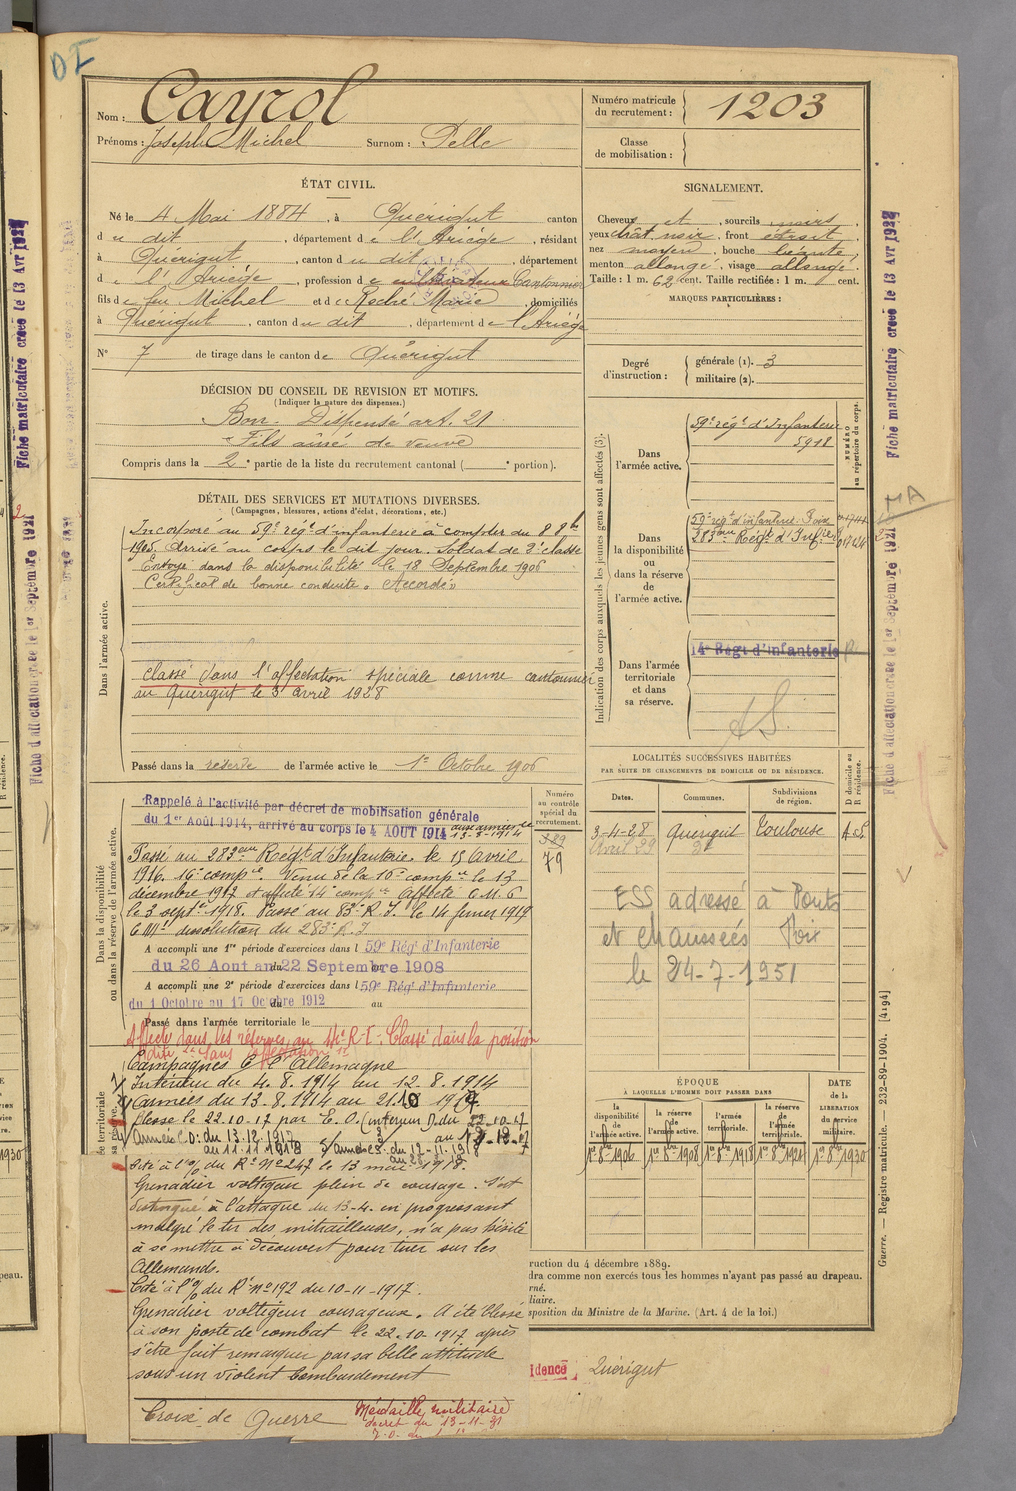 DI
Nom : Cayrol
Prénoms : Joseph Michel Surnom : Pelle
Numéro matricule du recrutement : 1203
Classe de mobilisation :
ÉTAT CIVIL.
Né le 4 Mai 1884, à Quérigut canton
du dit, département de l'Ariège, résidant
à Quérigut, canton du dit, département
de l'Ariège, profession de cultivateur Cantonnier
fils de feu Michel et de Roché Marie, domiciliés
à Quérigut, canton du dit, département de l'Ariège
N° 7 de tirage dans le canton de Quérigut
SIGNALEMENT.
Cheveux et, sourcils noirs,
yeux chât. noir, front étroit,
nez moyen, bouche béante,
menton allongé, visage allongé.
Taille : 1 m. 62 cent. Taille rectifiée : 1 m. cent.
MARQUES PARTICULIÈRES :
Degré d'instruction : générale (1). 3
militaire (2).
DÉCISION DU CONSEIL DE REVISION ET MOTIFS.
(Indiquer la nature des dispenses.)
Bon - Dispensé art. 21
- Fils aîné de veuve
Compris dans la 2e partie de la liste du recrutement cantonal ( e portion).
DÉTAIL DES SERVICES ET MUTATIONS DIVERSES.
(Campagnes, blessures, actions d'éclat, décorations, etc.)
Dans l'armée active.
Incorporé au 59e régt d'infanterie à compter du 8 8bre
1905. Arrivé au corps le dit jour. Soldat de 2e classe
Envoyé dans la disponibilité le 18 Septembre 1906
Certificat de bonne conduite : Accordé.
Classé dans l'affectation spéciale comme cantonnier
au Quérigut le 3 avril 1928
Passé dans la réserve de l'armée active le 1er Octobre 1906
Indication des corps auxquels les jeunes gens sont affectés (3).
NUMÉRO au répertoire du corps.
Dans l'armée active.
59e régt d'Infanterie
5918
Dans la disponibilité ou dans la réserve de l'armée active.
59e régt d'infanterie. Foix
283eme Régt d'Inf
Dans l'armée territoriale et dans sa réserve.
14e Régt d'infanterie
AS.
LOCALITÉS SUCCESSIVES HABITÉES
PAR SUITE DE CHANGEMENTS DE DOMICILE OU DE RÉSIDENCE.
D domicile ou R résidence.
Dates. Communes. Subdivisions de région.
3-4-28 Quérigut Toulouse A.S.
Avril 29 d°
ESS adressé à Ponts
et Chaussées Foix
le 24-7-1951
Dans la disponibilité ou dans la réserve de l'armée active.
Numéro au contrôle spécial du recrutement.
389
79
Rappelé à l'activité par décret de mobilisation générale
du 1er Août 1914, arrivé au corps le 4 AOUT 1914 aux armées le
13-8-1914
Passé au 283eme Régt d'Infanterie le 15 Avril
1916. 16e compie. Venu de la 16e compie le 13
décembre 1917 et affecté 14e compie Affecté C.M.6
le 3 septre 1918. Passé au 83e R.I. le 14 janvier 1919
C.M. dissolution du 283e R.I
A accompli une 1re période d'exercices dans l 59e Rég d'Infanterie
du 26 Aout au 22 Septembre 1908
A accompli une 2e période d'exercices dans l 59e Rég d'Infanterie
du 1 Octobre au 17 Octobre 1912 au
Passé dans l'armée territoriale le
Affecté dans les réserves au 14e R.I. Classé dans la position
dite "Sans affectation"
Campagnes C. l'Allemagne
Intérieur du 4.8.1914 au 12.8.1914
Armées du 13.8.1914 au 21.10 1917
Blessé le 22.10.17 par E.O. (intérieur) du 22-10-17
Année C.D: du 13.12.1917
au 11.11.1918
Cité à l'o/ du Rt N° 247 le 13 mai 1918.
Grenadier voltigeur plein de courage. S'est
distingué à l'attaque du 13-4. en progressant
malgré le tir des mitrailleuses, n'a pas hésité
à se mettre à découvert pour tuer sur les
Allemands.
Cité à l'o/ du Rt n° 192 du 10-11-1917.
Grenadier voltigeur courageux. A été blessé
à son poste de combat le 22-10-1917 après
s'être fait remarquer par sa belle attitude
sous un violent bombardement
Croix de Guerre Médaille militaire
décret du 13-11-31
ÉPOQUE
À LAQUELLE L'HOMME DOIT PASSER DANS
DATE DE LA LIBÉRATION DU service militaire.
la disponibilité de l'armée active. la réserve de l'armée active. l'armée territoriale. la réserve de l'armée territoriale.
1er 8bre 1906 1er 8bre 1908 1er 8bre 1918 1er 8bre 1924 1er 8bre 1930
ruction du 4 décembre 1889.
dra comme non exercés tous les hommes n'ayant pas passé au drapeau.
rné.
liaire.
sposition du Ministre de la Marine. (Art. 4 de la loi.)
idence Quérigut
Guerre. — Registre matricule. — 232-89-1904. [4194]
Fiche matriculaire créée le 13 Avr 1927
Fiche d'affectation créée le 1er Septembre 1921
Fiche matriculaire créée le 13 Avr 1927
Fiche d'affectation créée le 1er Septembre 1921